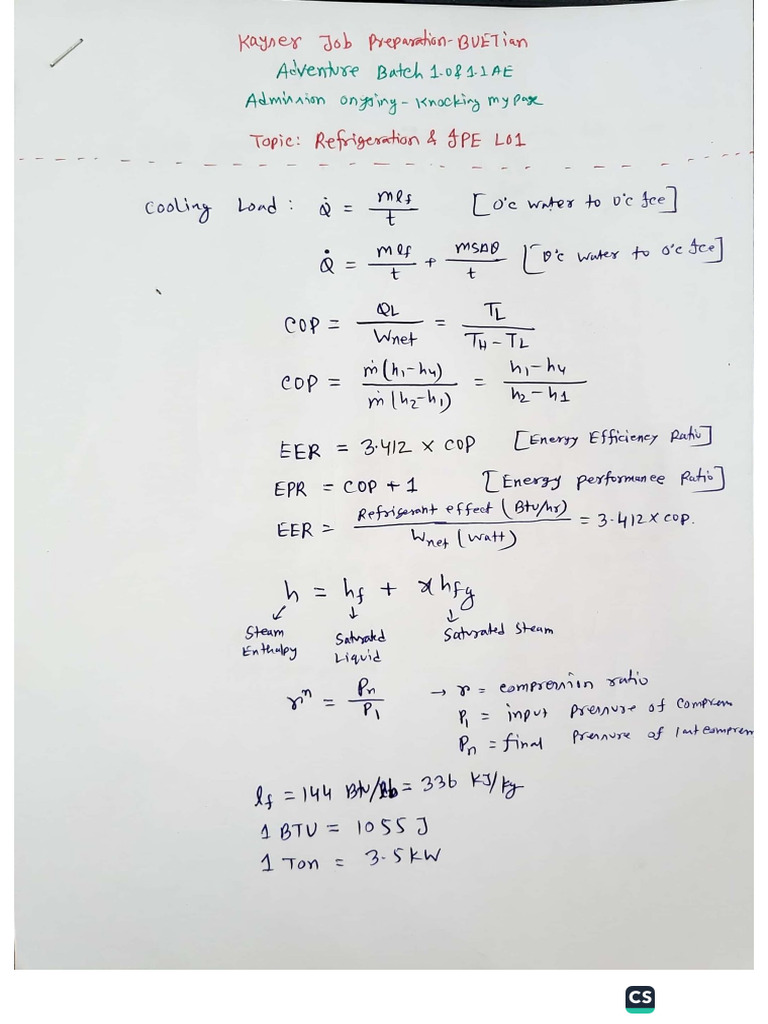 Kayser Job Preparation-BUETian
Adventure Batch 1.0 & 1.1 AE
Admission ongoing - Knocking my page
Topic: Refrigeration & IPE L01
Cooling Load: Q̇ = mlf / t [0°c water to 0°c Ice]
Q̇ = mlf / t + msΔθ / t [θ°c water to 0°c Ice]
COP = QL / Wnet = TL / (TH - TL)
COP = ṁ(h1-h4) / ṁ(h2-h1) = (h1-h4) / (h2-h1)
EER = 3.412 × COP [Energy Efficiency Ratio]
EPR = COP + 1 [Energy performance Ratio]
EER = Refrigerant effect (Btu/hr) / Wnet (Watt) = 3.412 × COP.
h = hf + x hfg
Steam Enthalpy Saturated Liquid Saturated Steam
r^n = Pn / P1 → r = compression ratio
P1 = input pressure of compress
Pn = final pressure of last compress
lf = 144 Btu/lb = 336 KJ/kg
1 BTU = 1055 J
1 Ton = 3.5 KW
CS